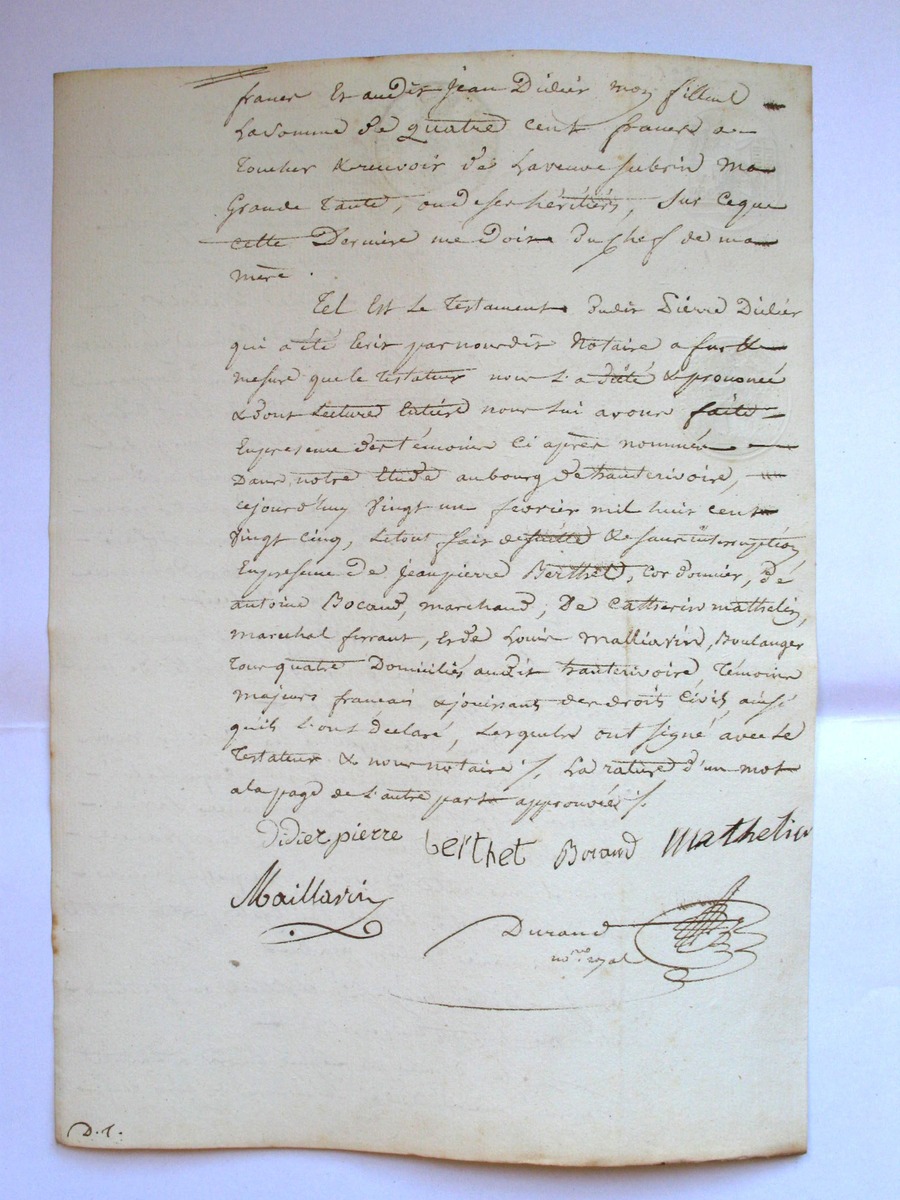 francs Et audit Jean Didier mon filleul
La Somme de quatre cent francs a
Toucher & recevoir de La veuve Subrin ma
Grande Tante, ou de ses héritiers, Sur Ce que
cette Derniere me Doit Du Chef de ma
mere.
Tel Est Le Testament Dudit Pierre Didier
qui a été Ecrit par nous dit Notaire a fur &
mesure que le Testateur nous L'a dicté & prononcé
& dont Lecture Entiere nous lui avons faite
En presence des témoins Ci après nommés
Dans notre Etude au bourg de hauterivoire,
cejourd'huy Vingt un fevrier mil huit cent
Vingt Cinq, Le tout fait de suitte & sans interruption,
En presence De Jean pierre Berthet, Cordonnier, de
antoine Bocaud, marchand, De Catherin mathelin,
marechal ferrant, et de Louis Malliavin, Boulanger
Tous quatre Domiciliés audit hauterivoire, Témoins
majeurs francais & jouissant des droits Civils ainsi
qu'ils L'ont déclaré, Lesquels ont signé avec Le
Testateur & nous notaire ./. La rature d'un mot
a la page de L'autre part approuvée ./.
Didier pierre berthet Bocaud Mathelin
Maillavin
Durand
no.re royal
D. T.